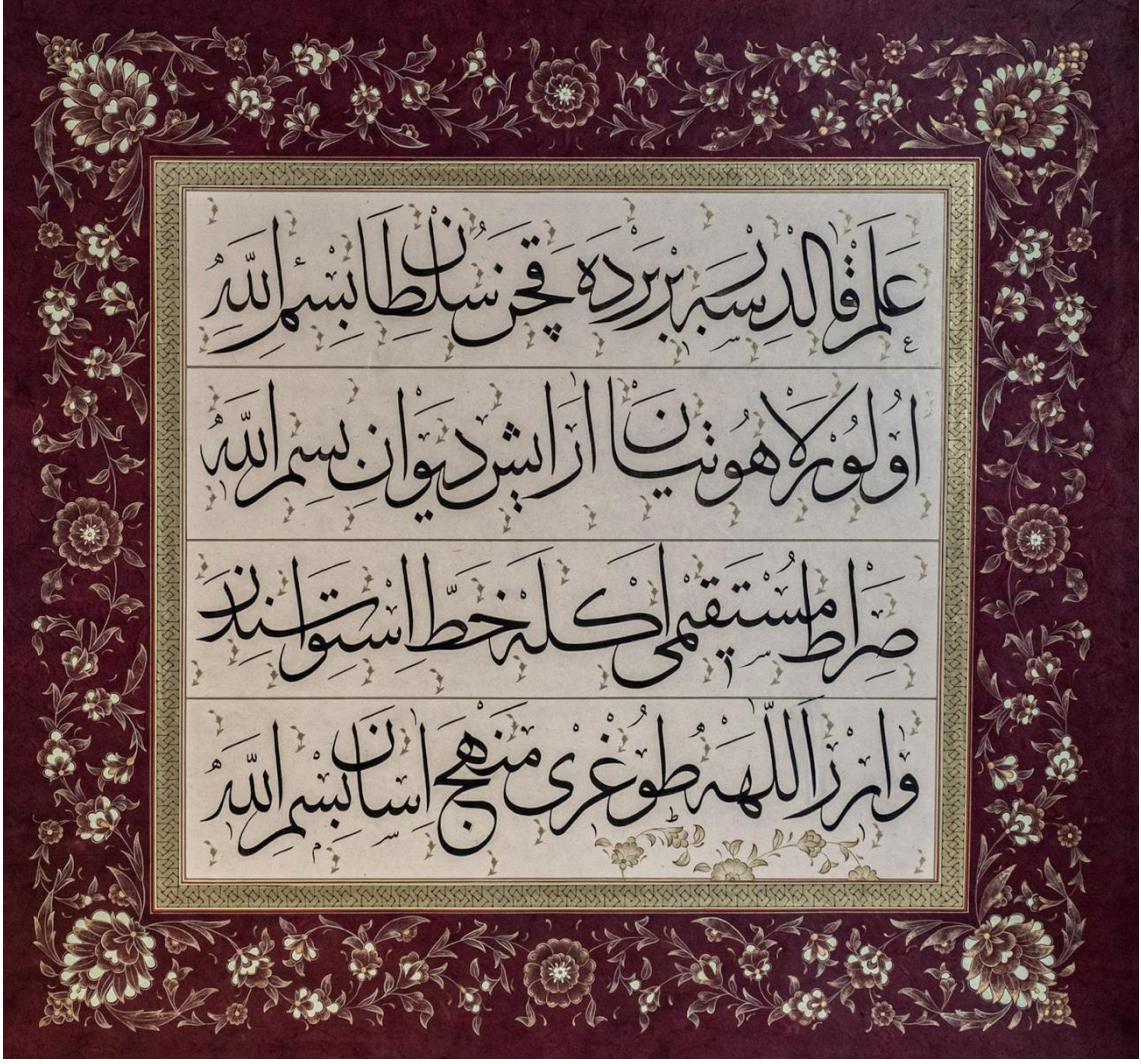 علم قالدرسه بر یرده قچن سلطان بسم الله
اولور لاهوتیان ارایش دیوان بسم الله
صراط مستقیمی اکله خط استواسندن
وارر اللهه طوغری منهج اسان بسم الله